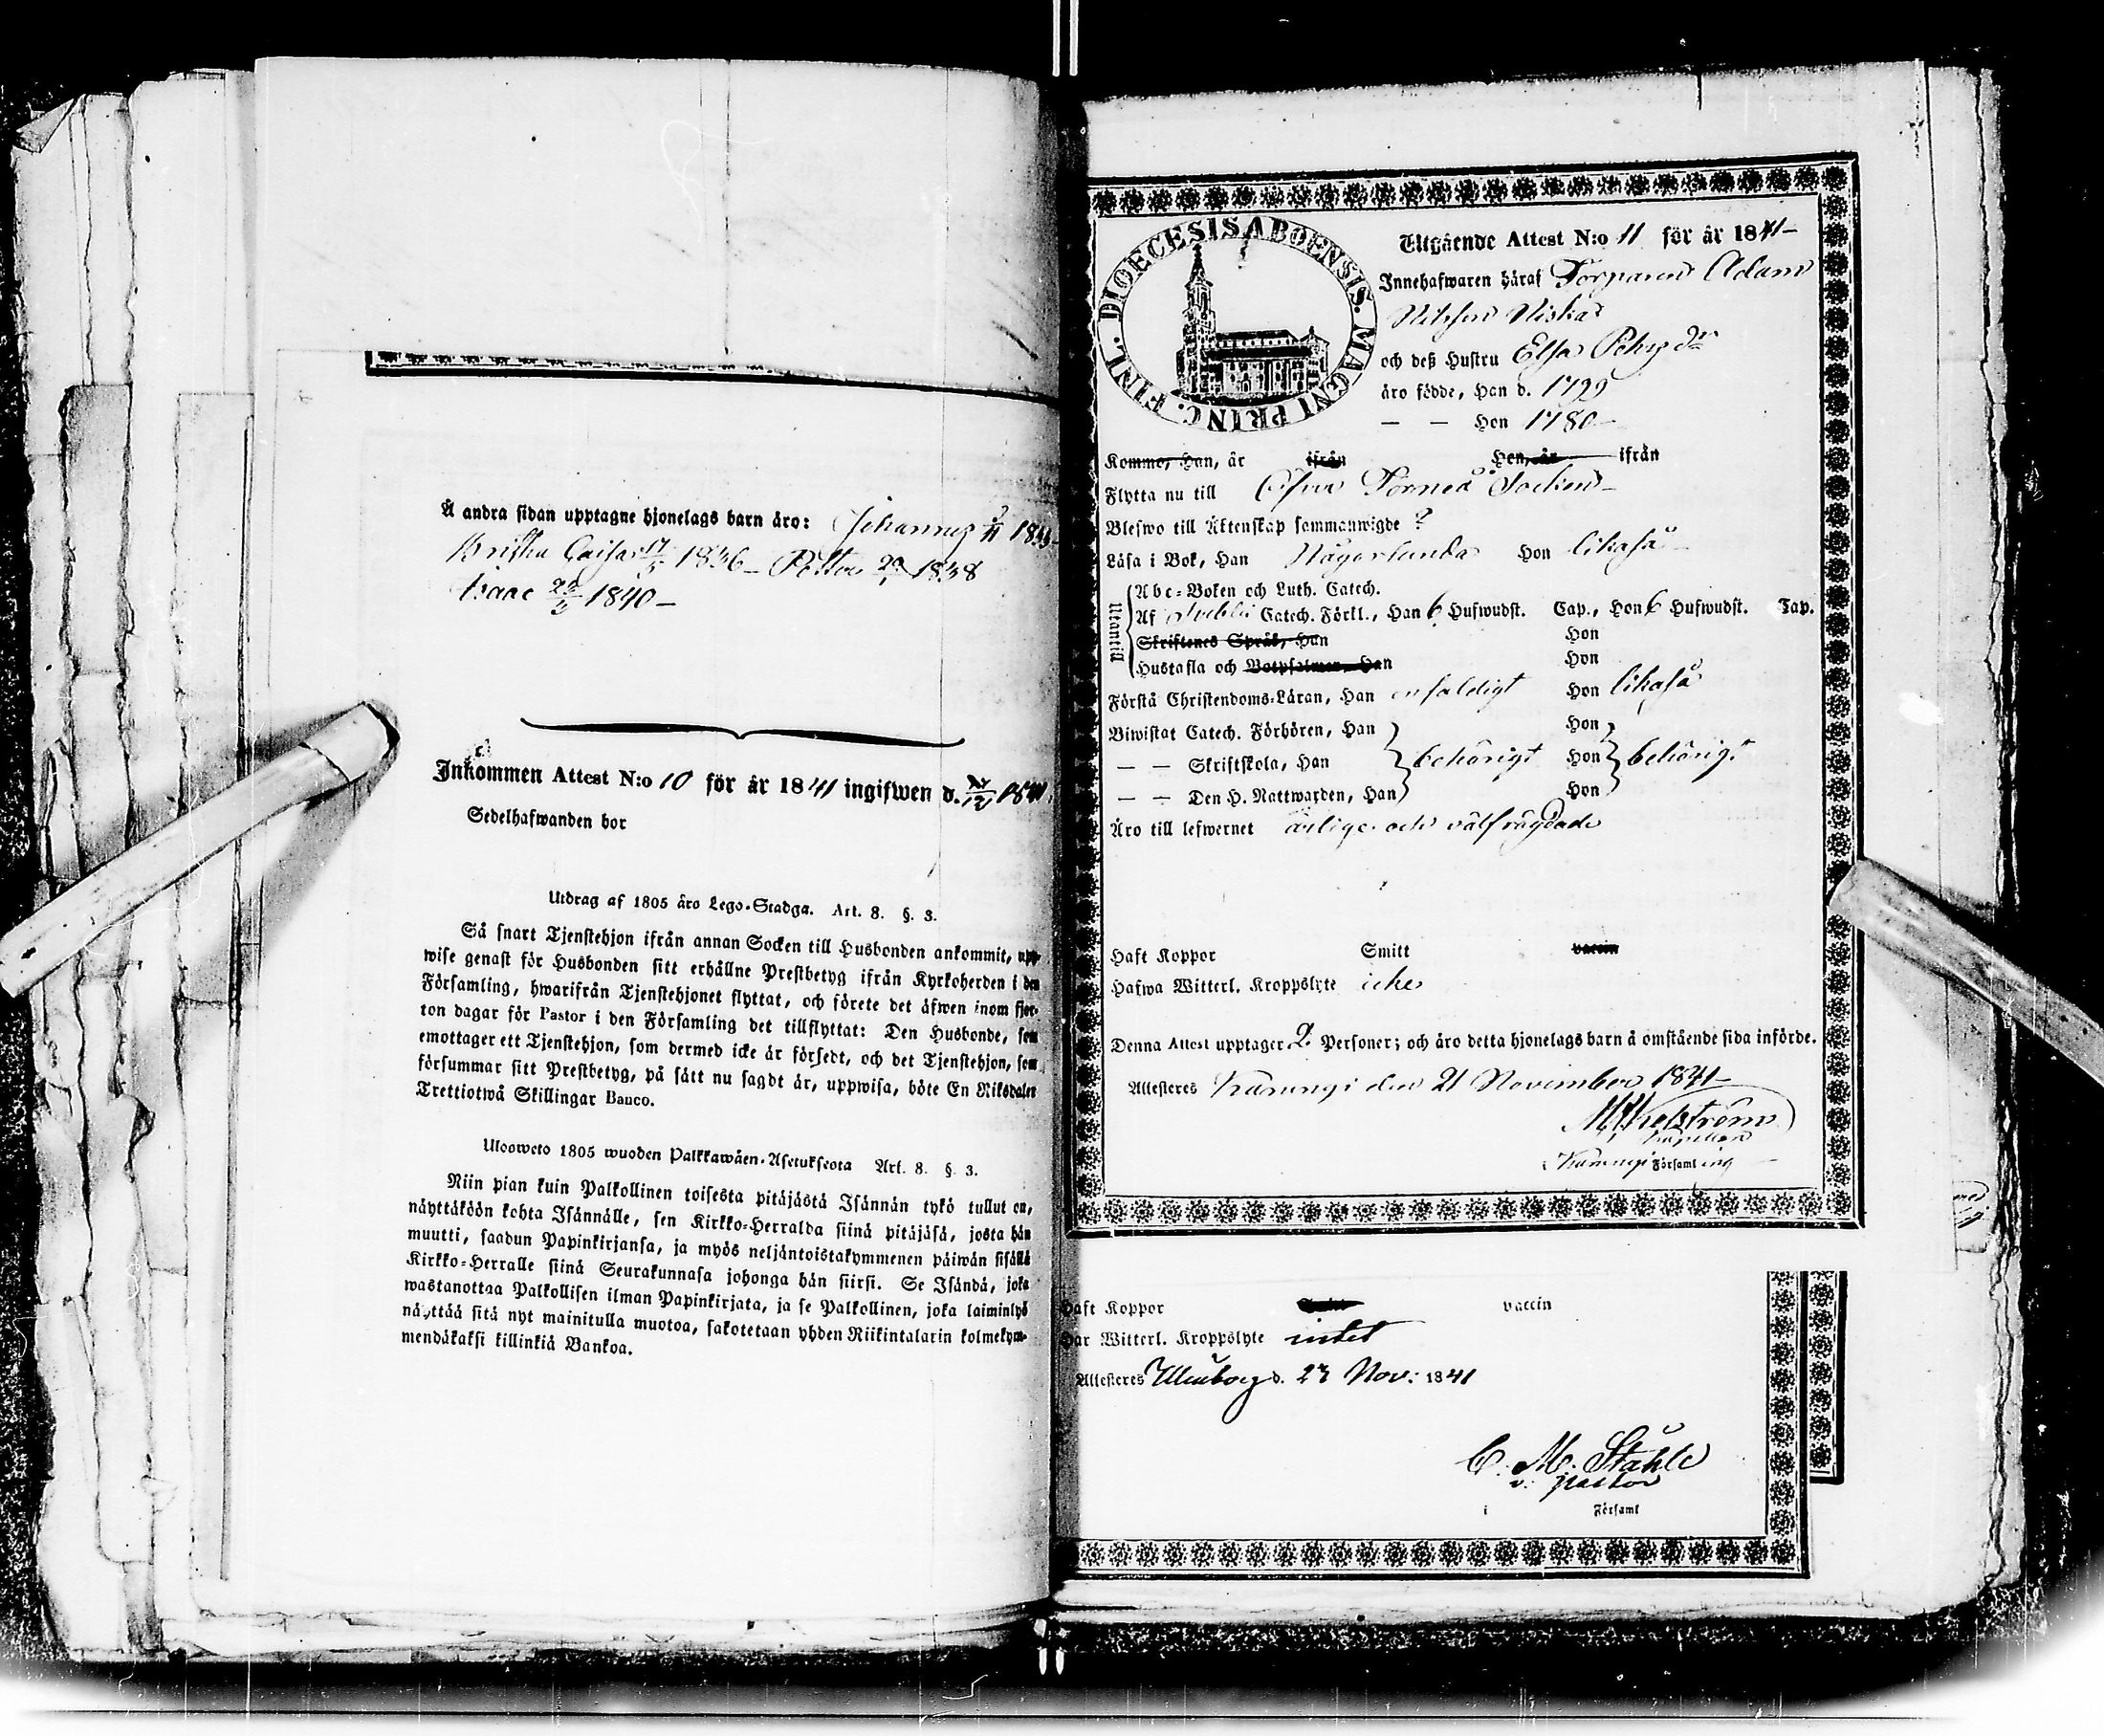 Å andra sidan upptagne hjonelags barn äro: Johannes
Brista Caisa 1836 – Petter 1838
Isaac 1840 –
Inkommen Attest N:o 10 för år 1841 ingifwen d. 1841
Sedelhafwanden bor
Utdrag af 1805 åro Lego-Stadga. Art. 8. §. 3.
Så snart Tjenstehjon ifrån annan Socken till Husbonden ankommit, upp-
wise genast för Husbonden sitt erhållne Prestbetyg ifrån Kyrkoherden i den
Församling, hwarifrån Tjenstehjonet flyttat, och förete det äfwen inom fjor-
ton dagar för Pastor i den Församling det tillflyttat: Den Husbonde, som
emottager ett Tjenstehjon, som dermed icke är försedt, och det Tjenstehjon, som
försummar sitt Prestbetyg, på sätt nu sagdt är, uppwisa, böte En Riksdaler
Trettiotwå Skillingar Banco.
Ulosweto 1805 wuoden Palkkawäen-Asetuksesta Art. 8. §. 3.
Niin pian kuin Palkollinen toisesta pitäjästä Isännän tykö tullut on,
näyttäköön kohta Isännälle, sen Kirkko-Herralda siinä pitäjäsä, josta hän
muutti, saadun Papinkirjansa, ja myös neljäntoistakymmenen päiwän sisällä
Kirkko-Herralle siinä Seurakunnasa johonga hän siirsi. Se Isändä, joka
wastanottaa Palkollisen ilman Papinkirjata, ja se Palkollinen, joka laiminlyö
näyttää sitä nyt mainitulla muotoa, sakotetaan yhden Riikintalarin kolmekym-
mendäkaksi killinkiä Bankoa.
DIOECESIS ABOENSIS. MAGNI PRINC. FINL.
Utgående Attest N:o 11 för år 1841 –
Innehafwaren häraf Torparen Adam
Nilsson Niska
och deß Hustru Elsa Pehrsdr
äro födde, Han d. 1799
— — Hon 1780 –
Kommo, Han, år ifrån Hon, år ifrån
Flytta nu till Öfver Torneå Socken –
Blefwo till Äktenskap sammanwigde ?
Läsa i Bok, Han Någorlunda Hon likaså –
Utantill
Abc-Boken och Luth. Catech.
Af Svebili Catech. Förkl., Han 6 Hufwudst. Cap., Hon 6 Hufwudst. Cap.
Skriftenes Språk, Han Hon
Hustafla och Botpsalmer, Han Hon
Förstå Christendoms-Läran, Han enfaldigt Hon likaså
Biwistat Catech. Förhören, Han Hon
— — Skriftskola, Han behörigt Hon behörigt
— — Den H. Nattwarden, Han Hon
Äro till lefwernet ärlige och välfrägdade
Haft Koppor Smitt vaccin
Hafwa Witterl. Kroppslyte icke
Denna Attest upptager 2 Personer; och äro detta hjonelags barn å omstående sida införde.
Attesteres Karungi den 21 November 1841 –
Capellan
i Karungi Församling
Haft Koppor vaccin
Har Witterl. Kroppslyte intet
Attesteres Uleåborg d. 27 Nov: 1841
C. M. Ståhle
v. pastor
i Församl